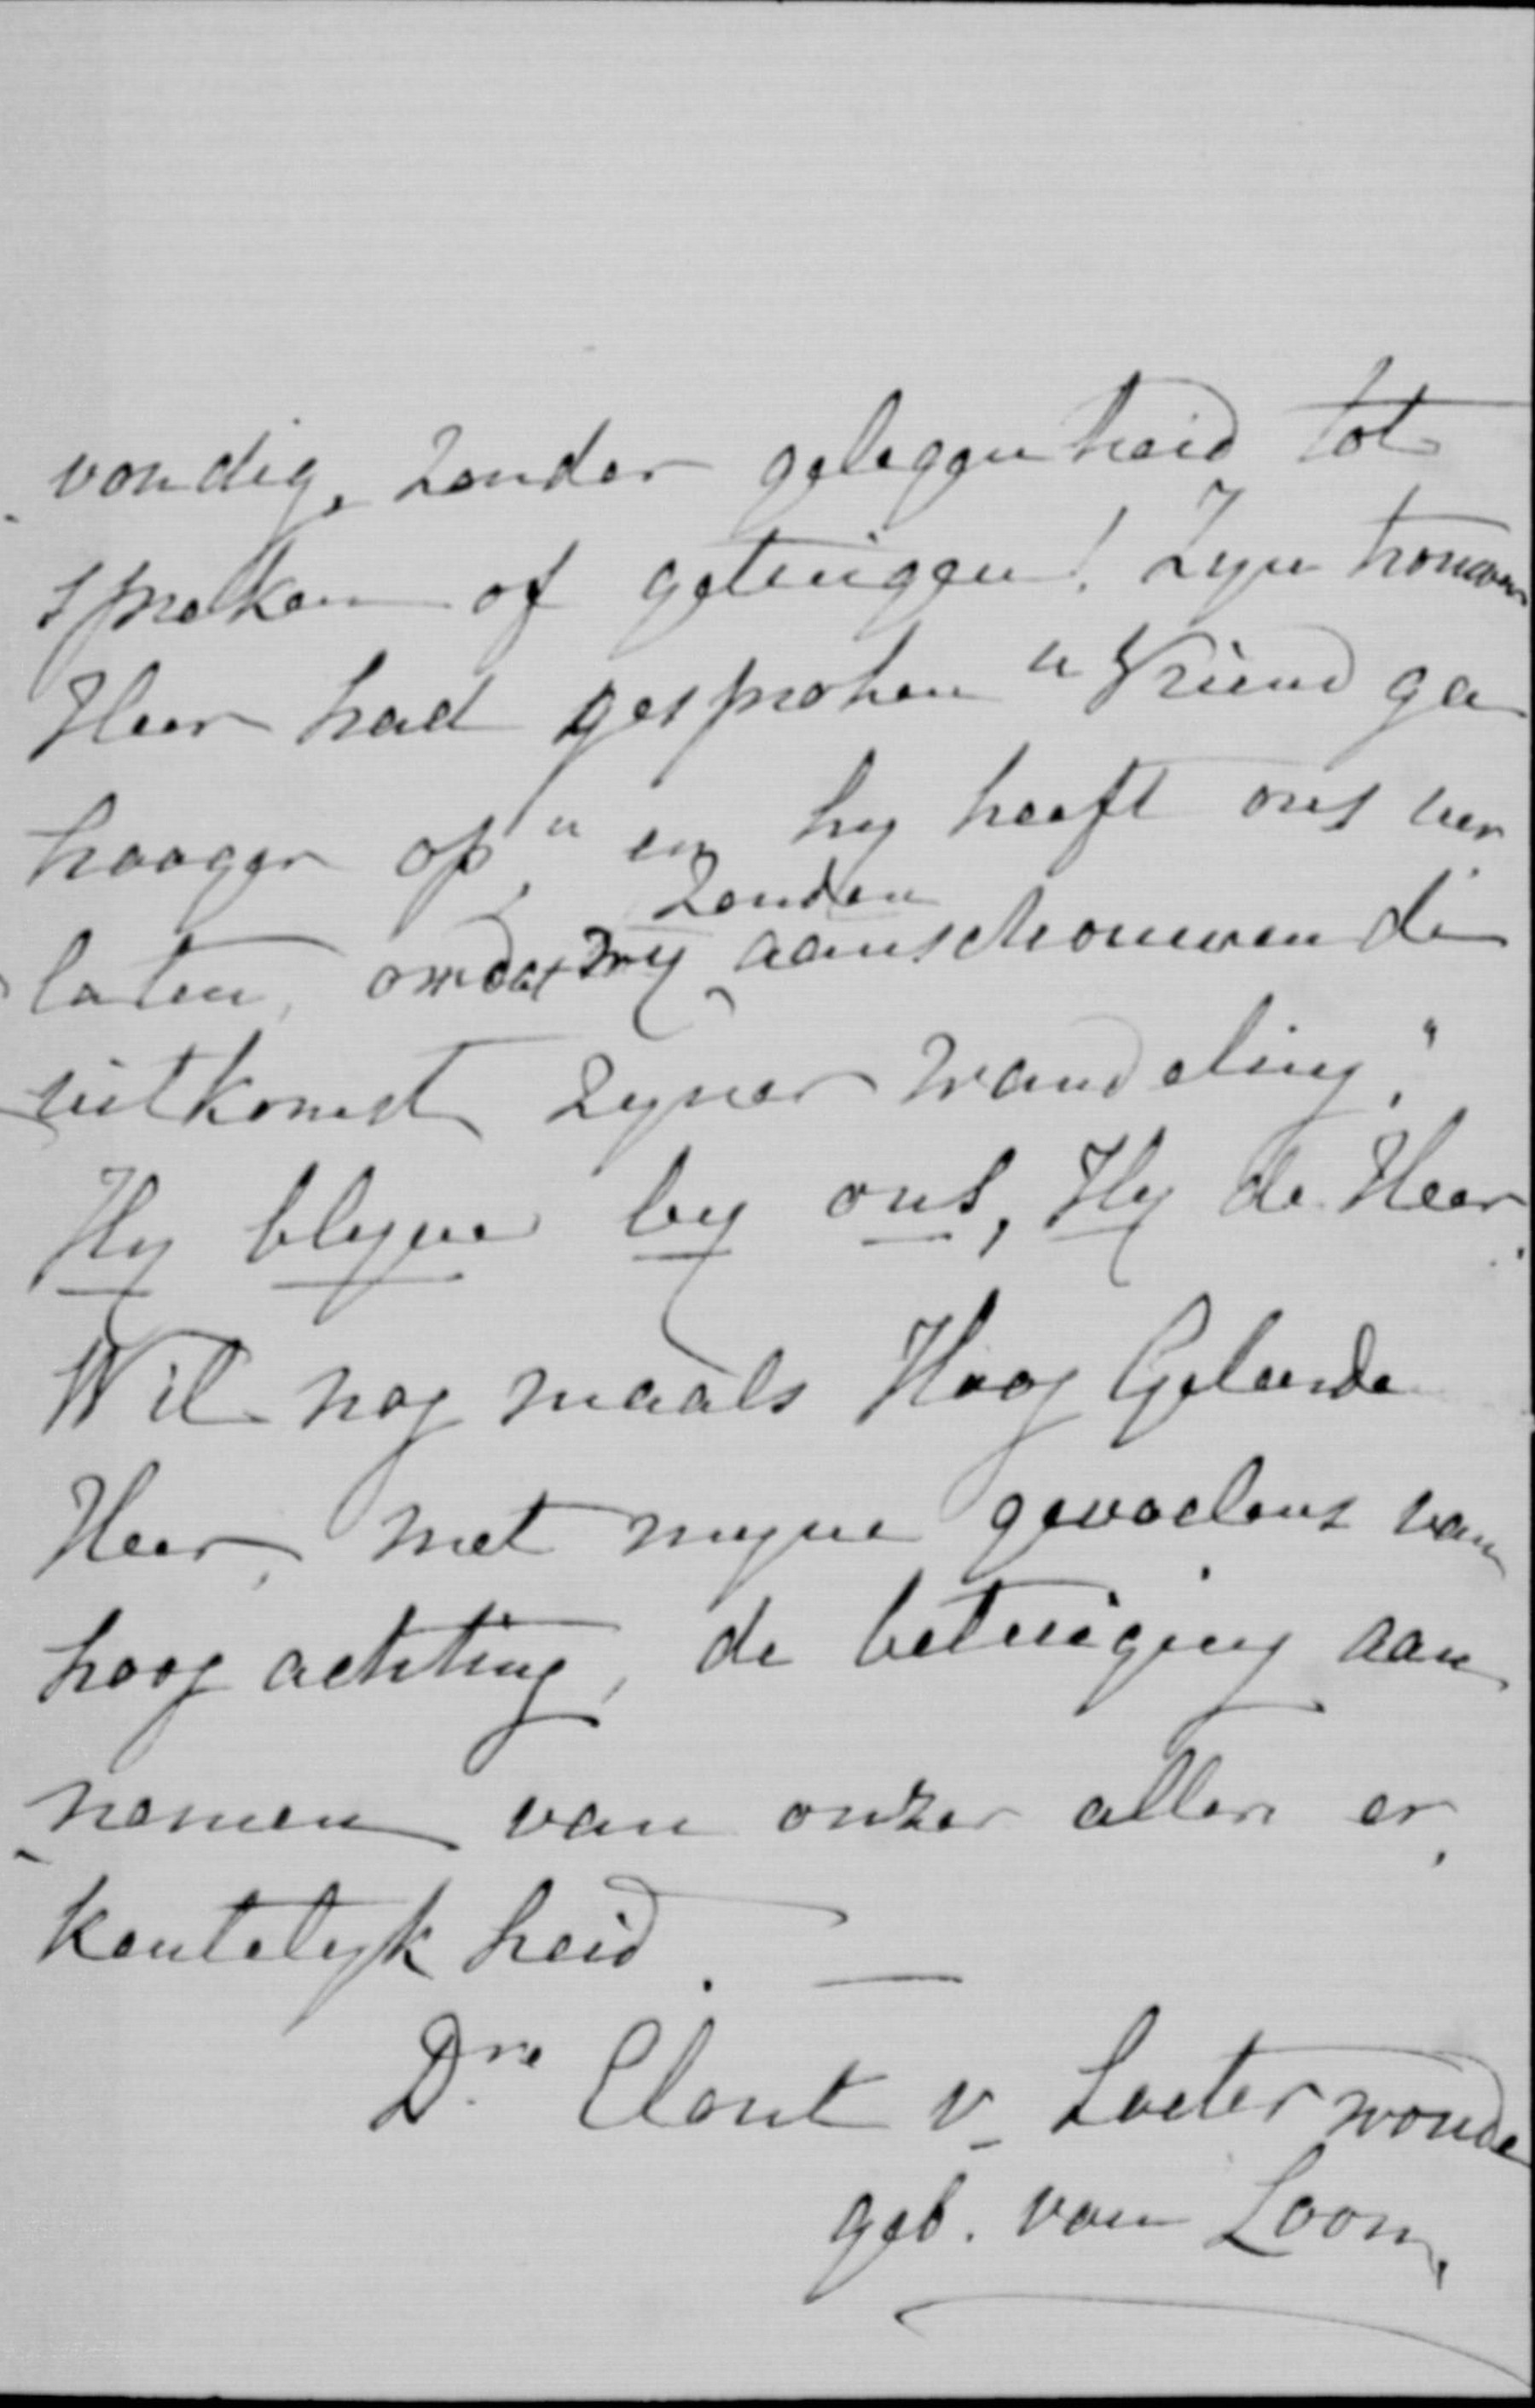 voudig, zonder geleggenheid tot
spreken of getuiggen! Zyn trouwen
Heer had gesproken "Vriend ga
hooger op," en hy heeft ons ver
laten, omdat wy zouden aanschouwen de
uitkomst zyner wandeling."
Hy blyve by ons, Hy de Heer.
Wil nog maals Hoog Geleerde
Heer, met myne gevoelens van
hoog achting, de betuiging aan
nemen van onzer aller er,
kentelyk heid. —
Dre Elout v Soeterwoude
geb. van Loon,